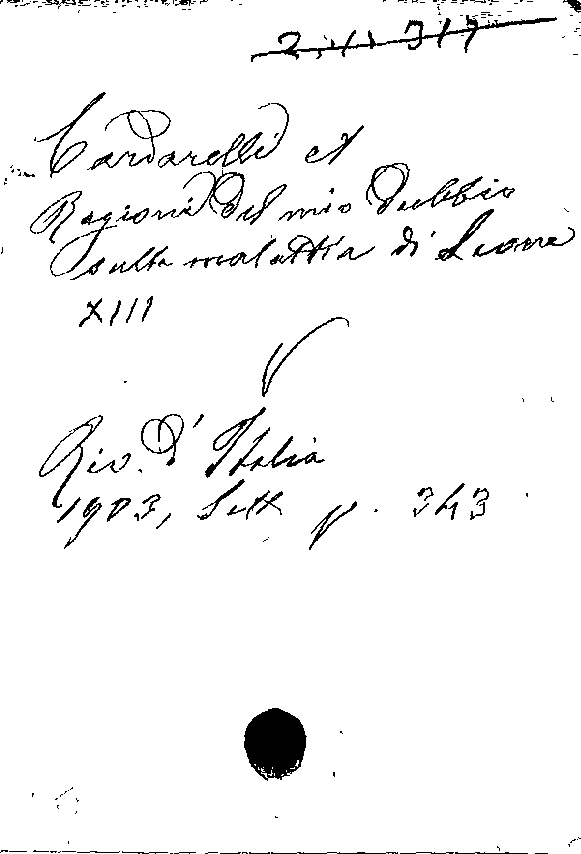 2. 11. 317
Cardarelli A
Ragioni del mio dubbio
sulla malattia di Leone
XIII
Riv. d'Italia
1903, Sett p. 343